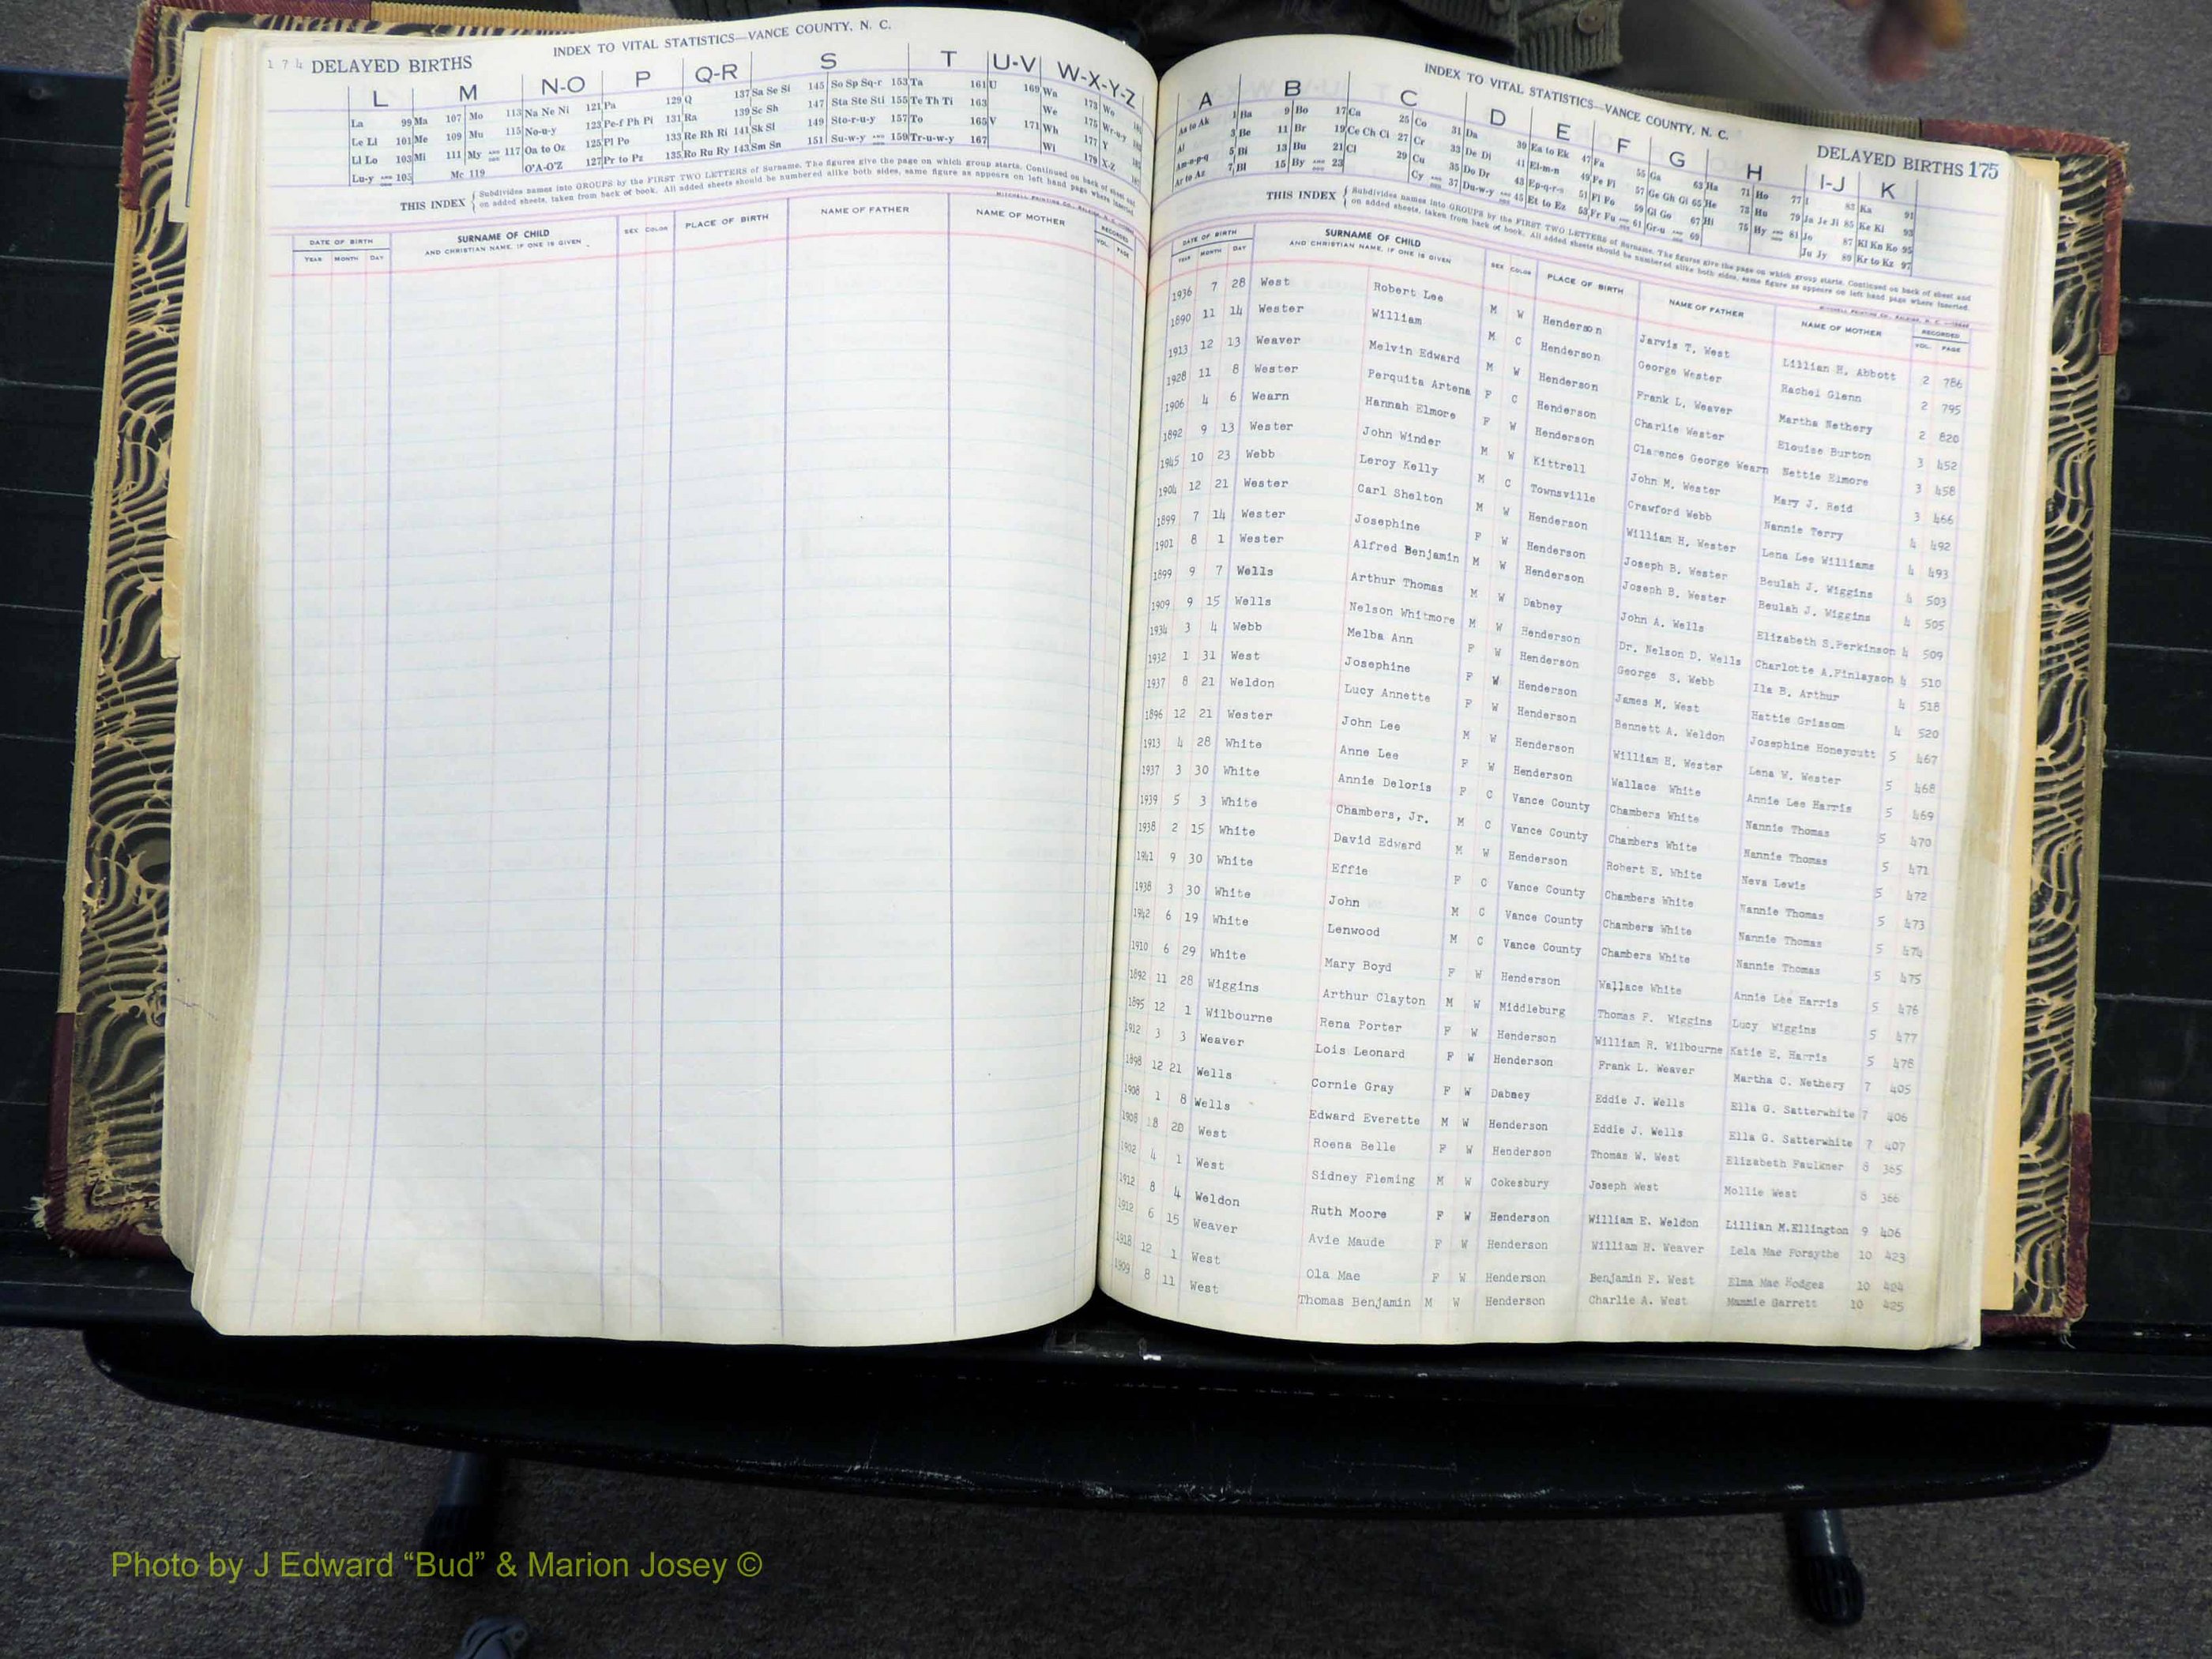 174 DELAYED BIRTHS
INDEX TO VITAL STATISTICS—VANCE COUNTY, N. C.
L M N-O P Q-R S T U-V W-X-Y-Z
La 99 Ma 107 Mo 113 Na Ne Ni 121 Pa 129 Q 137 Sa Se Si 145 So Sp Sq-r 153 Ta 161 U 169 Wa 173 Wo
Le Li 101 Me 109 Mu 115 No-u-y 123 Pe-f Ph Pi 131 Ra 139 Sc Sh 147 Sta Ste Sti 155 Te Th Ti 163 We 175 Wr-u-y
Ll Lo 103 Mi 111 My 117 Oa to Oz 125 Pl Po 133 Re Rh Ri 141 Sk Sl 149 Sto-r-u-y 157 To 165 V 171 Wh 177 Y
Lu-y 105 Mc 119 O'A-O'Z 127 Pr to Pz 135 Ro Ru Ry 143 Sm Sn 151 Su-w-y 159 Tr-u-w-y 167 Wi 179 X-Z
THIS INDEX { Subdivides names into GROUPS by the FIRST TWO LETTERS of Surname. The figures give the page on which group starts. Continued on back of sheet and
on added sheets, taken from back of book. All added sheets should be numbered alike both sides, same figure as appears on left hand page where inserted.
DATE OF BIRTH SURNAME OF CHILD SEX COLOR PLACE OF BIRTH NAME OF FATHER NAME OF MOTHER RECORDED
YEAR MONTH DAY AND CHRISTIAN NAME, IF ONE IS GIVEN VOL. PAGE
INDEX TO VITAL STATISTICS—VANCE COUNTY, N. C.
DELAYED BIRTHS 175
A B C D E F G H I-J K
Aa to Ak 1 Ba 9 Bo 17 Ca 25 Co 31 Da 39 Ea to Ek 47 Fa 55 Ga 63 Ha 71 Ho 77 I 83 Ka 91
Al 3 Be 11 Br 19 Ce Ch Ci 27 Cr 33 De Di 41 El-m-n 49 Fe Fi 57 Ge Gh Gi 65 He 73 Hu 79 Ja Je Ji 85 Ke Ki 93
Am-n-p-q 5 Bi 13 Bu 21 Cl 29 Cu 35 Do Dr 43 Ep-q-r-s 51 Fl Fo 59 Gl Go 67 Hi 75 Hy 81 Jo 87 Kl Kn Ko 95
Ar to Az 7 Bl 15 By 23 Cy 37 Du-w-y 45 Et to Ez 53 Fr Fu 61 Gr-u 69 Ju Jy 89 Kr to Kz 97
THIS INDEX { Subdivides names into GROUPS by the FIRST TWO LETTERS of Surname. The figures give the page on which group starts. Continued on back of sheet and
on added sheets, taken from back of book. All added sheets should be numbered alike both sides, same figure as appears on left hand page where inserted.
DATE OF BIRTH SURNAME OF CHILD SEX COLOR PLACE OF BIRTH NAME OF FATHER NAME OF MOTHER RECORDED
YEAR MONTH DAY AND CHRISTIAN NAME, IF ONE IS GIVEN VOL. PAGE
1936 7 28 West Robert Lee M W Henderson Jarvis T. West Lillian H. Abbott 2 786
1890 11 14 Wester William M C Henderson George Wester Rachel Glenn 2 795
1913 12 13 Weaver Melvin Edward M W Henderson Frank L. Weaver Martha Nethery 2 820
1928 11 8 Wester Perquita Artena F C Henderson Charlie Wester Elouise Burton 3 452
1906 4 6 Wearn Hannah Elmore F W Henderson Clarence George Wearn Nettie Elmore 3 458
1892 9 13 Wester John Winder M W Kittrell John M. Wester Mary J. Reid 3 466
1945 10 23 Webb Leroy Kelly M C Townsville Crawford Webb Nannie Terry 4 492
1904 12 21 Wester Carl Shelton M W Henderson William H. Wester Lena Lee Williams 4 493
1899 7 14 Wester Josephine F W Henderson Joseph B. Wester Beulah J. Wiggins 4 503
1901 8 1 Wester Alfred Benjamin M W Henderson Joseph B. Wester Beulah J. Wiggins 4 505
1899 9 7 Wells Arthur Thomas M W Dabney John A. Wells Elizabeth S.Perkinson 4 509
1909 9 15 Wells Nelson Whitmore M W Henderson Dr. Nelson D. Wells Charlotte A.Finlayson 4 510
1934 3 4 Webb Melba Ann F W Henderson George S. Webb Ila B. Arthur 4 518
1932 1 31 West Josephine F W Henderson James M. West Hattie Grissom 4 520
1937 8 21 Weldon Lucy Annette F W Henderson Bennett A. Weldon Josephine Honeycutt 5 467
1896 12 21 Wester John Lee M W Henderson William H. Wester Lena W. Wester 5 468
1913 4 28 White Anne Lee F W Henderson Wallace White Annie Lee Harris 5 469
1937 3 30 White Annie Deloris F C Vance County Chambers White Nannie Thomas 5 470
1939 5 3 White Chambers, Jr. M C Vance County Chambers White Nannie Thomas 5 471
1938 2 15 White David Edward M W Henderson Robert E. White Neva Lewis 5 472
1941 9 30 White Effie F C Vance County Chambers White Nannie Thomas 5 473
1938 3 30 White John M C Vance County Chambers White Nannie Thomas 5 474
1942 6 19 White Lenwood M C Vance County Chambers White Nannie Thomas 5 475
1910 6 29 White Mary Boyd F W Henderson Wallace White Annie Lee Harris 5 476
1892 11 28 Wiggins Arthur Clayton M W Middleburg Thomas F. Wiggins Lucy Wiggins 5 477
1895 12 1 Wilbourne Rena Porter F W Henderson William R. Wilbourne Katie E. Harris 5 478
1912 3 3 Weaver Lois Leonard F W Henderson Frank L. Weaver Martha C. Nethery 7 405
1898 12 21 Wells Cornie Gray F W Dabney Eddie J. Wells Ella G. Satterwhite 7 406
1908 1 8 Wells Edward Everette M W Henderson Eddie J. Wells Ella G. Satterwhite 7 407
1908 18 20 West Roena Belle F W Henderson Thomas W. West Elizabeth Faulkner 8 365
1902 4 1 West Sidney Fleming M W Cokesbury Joseph West Mollie West 8 366
1912 8 4 Weldon Ruth Moore F W Henderson William E. Weldon Lillian M.Ellington 9 406
1912 6 15 Weaver Avie Maude F W Henderson William H. Weaver Lela Mae Forsythe 10 423
1918 12 1 West Ola Mae F W Henderson Benjamin F. West Elma Mae Hodges 10 424
1909 8 11 West Thomas Benjamin M W Henderson Charlie A. West Mammie Garrett 10 425
Photo by J Edward “Bud” & Marion Josey ©